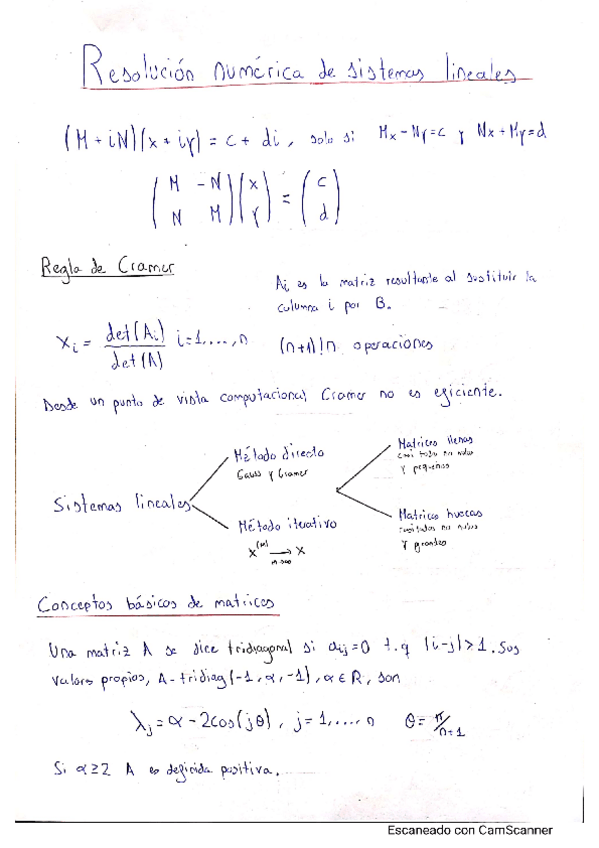 Resolución numérica de sistemas lineales
(M + iN)(x + iy) = c + di, solo si Mx - Ny = c y Nx + My = d
( M -N ) ( x ) = ( c )
( N M ) ( y ) ( d )
Regla de Cramer
Ai es la matriz resultante al sustituir la
columna i por B.
xi = det(Ai) / det(A) i=1,...,n (n+1)!n operaciones
Desde un punto de vista computacional, Cramer no es eficiente.
Sistemas lineales
Método directo
Gauss y Cramer
Método iterativo
x^(m) → x
m→∞
Matrices llenas
casi todo no nulos
y pequeños
Matrices huecas
casi todos no nulos
y grandes
Conceptos básicos de matrices
Una matriz A se dice tridiagonal si aij = 0 t.q |i-j| > 1. Sus
valores propios, A = tridiag(-1, α, -1), α ∈ R, son
λj = α - 2cos(jθ), j = 1,..., n θ = π/n+1
Si α ≥ 2 A es definida positiva.
Escaneado con CamScanner